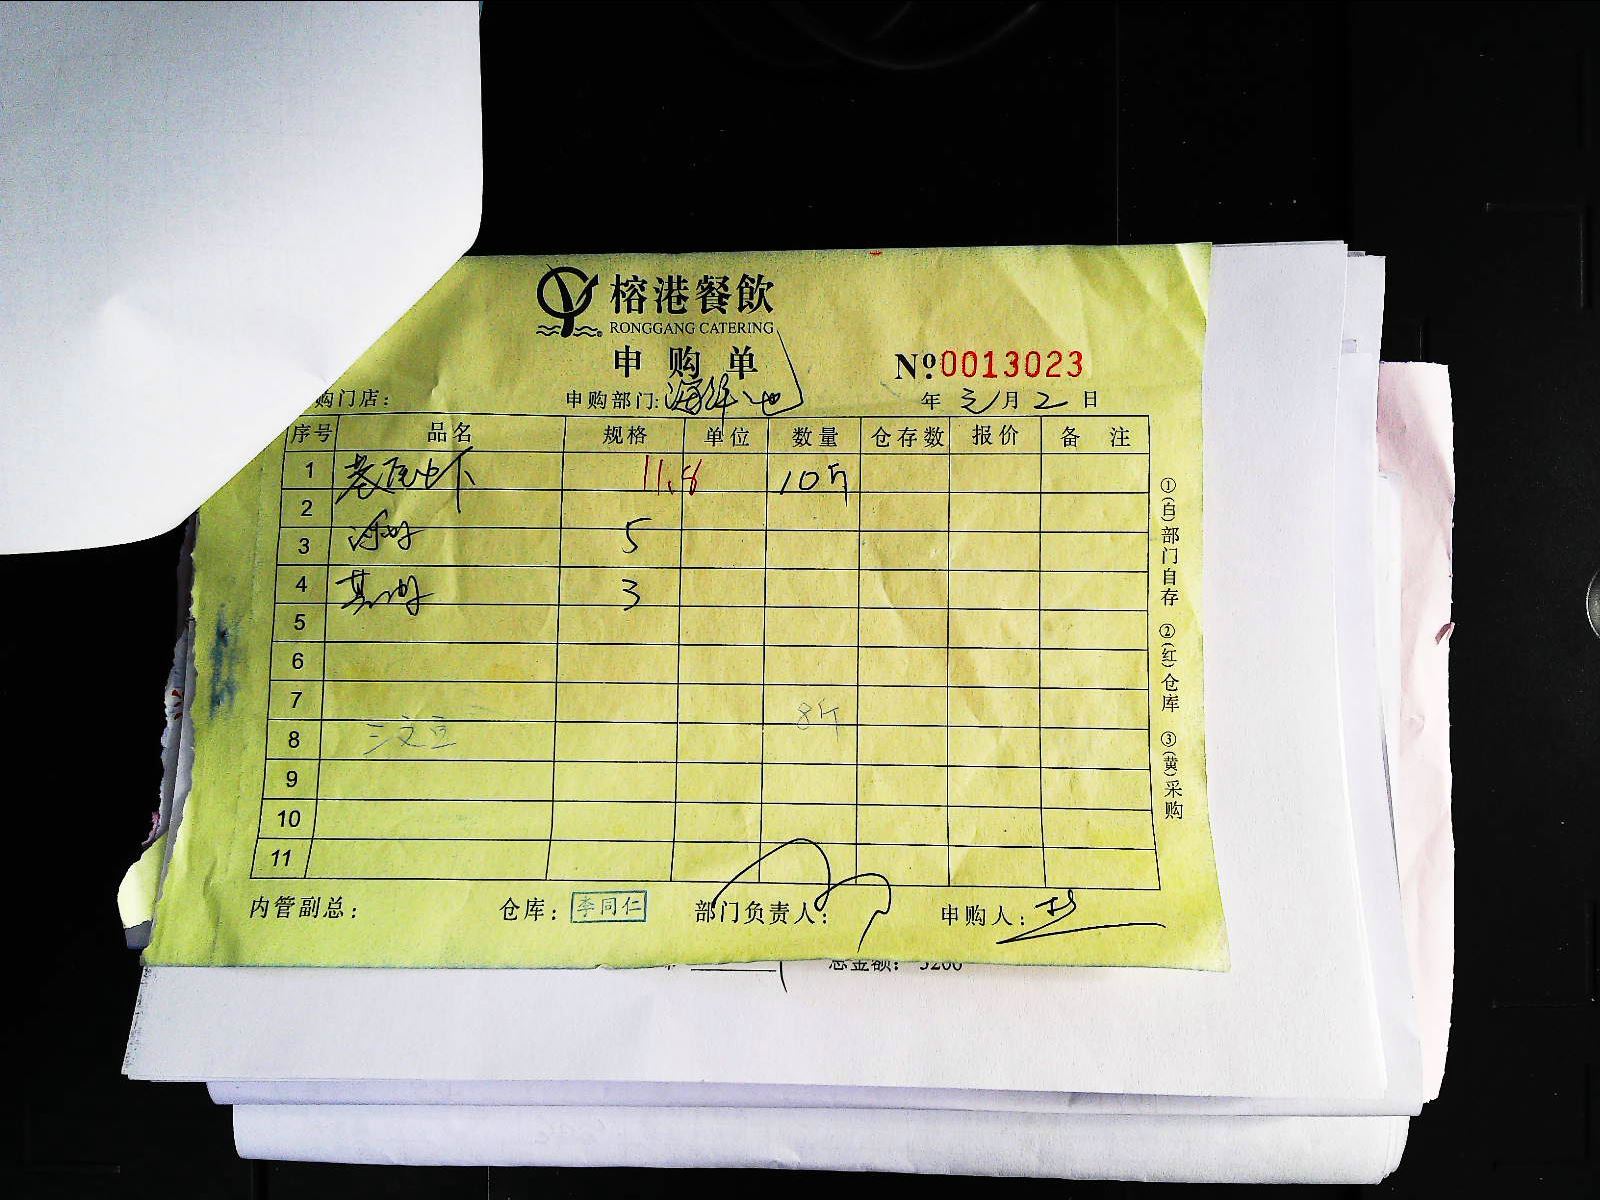 榕港餐飲
RONGGANG CATERING
申购单
Nº0013023
购门店： 申购部门: 海鲜池 年 元月2日
序号 品名 规格 单位 数量 仓存数 报价 备注
1 11.8 10斤
2
3 5
4 3
5
6
7
8 三文 8斤
9
10
11
内管副总： 仓库：李同仁 部门负责人： 申购人：
①(白)部门自存 ②(红)仓库 ③(黄)采购
总金额： 5200